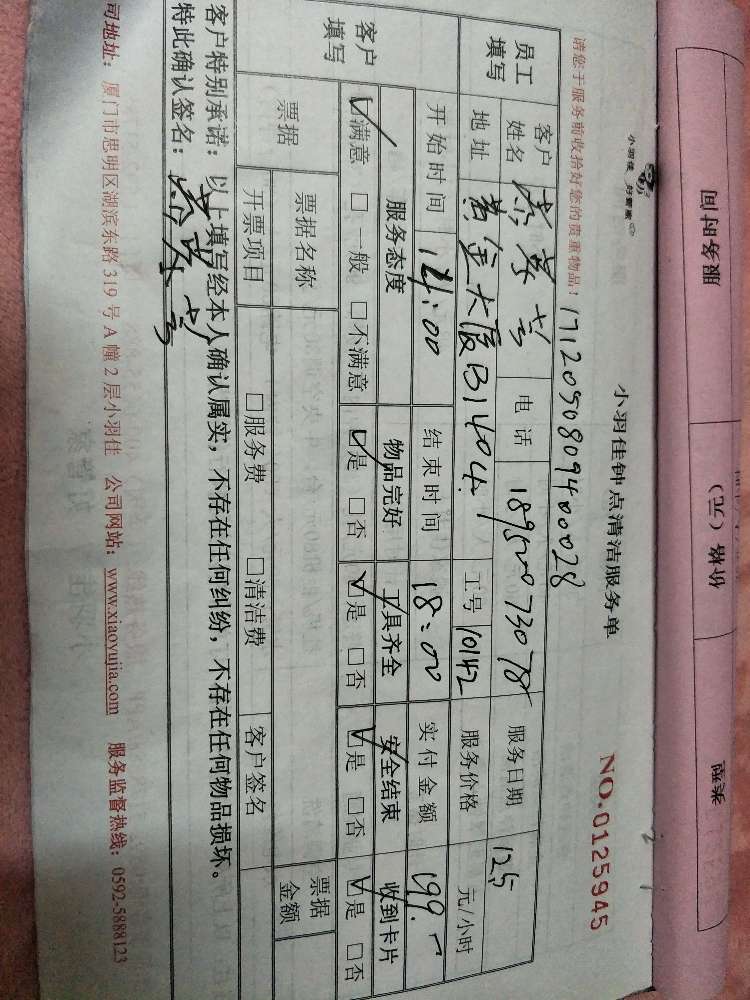 服务时间 价格(元) 来源
小羽佳 好管家
小羽佳钟点清洁服务单
NO.0125945
请您于服务前收拾好您的贵重物品！ 171205080940028
员工填写 客户姓名 电话 18950073078 服务日期 12.5
地址 黄金大厦B1404. 工号 10142 服务价格 元/小时
开始时间 14:00 结束时间 18:00 实付金额 199.-
客户填写 服务态度 物品完好 工具齐全 安全结束 收到卡片
☑满意 □一般 □不满意 ☑是 □否 ☑是 □否 ☑是 □否 ☑是 □否
票据 票据名称 票据金额
开票项目 □服务费 □清洁费 客户签名
客户特别承诺：以上填写经本人确认属实，不存在任何纠纷，不存在任何物品损坏。
特此确认签名：
司地址：厦门市思明区湖滨东路319号A幢2层小羽佳 公司网站：www.xiaoyujia.com 服务监督热线：0592-5888123